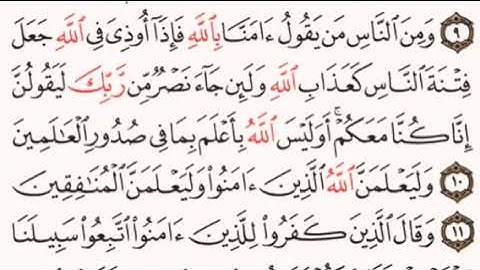 ٩ وَمِنَ ٱلنَّاسِ مَن يَقُولُ ءَامَنَّا بِٱللَّهِ فَإِذَآ أُوذِىَ فِى ٱللَّهِ جَعَلَ
فِتْنَةَ ٱلنَّاسِ كَعَذَابِ ٱللَّهِ وَلَئِن جَآءَ نَصْرٌ مِّن رَّبِّكَ لَيَقُولُنَّ
إِنَّا كُنَّا مَعَكُمْ ۚ أَوَلَيْسَ ٱللَّهُ بِأَعْلَمَ بِمَا فِى صُدُورِ ٱلْعَـٰلَمِينَ
١٠ وَلَيَعْلَمَنَّ ٱللَّهُ ٱلَّذِينَ ءَامَنُوا۟ وَلَيَعْلَمَنَّ ٱلْمُنَـٰفِقِينَ
١١ وَقَالَ ٱلَّذِينَ كَفَرُوا۟ لِلَّذِينَ ءَامَنُوا۟ ٱتَّبِعُوا۟ سَبِيلَنَا